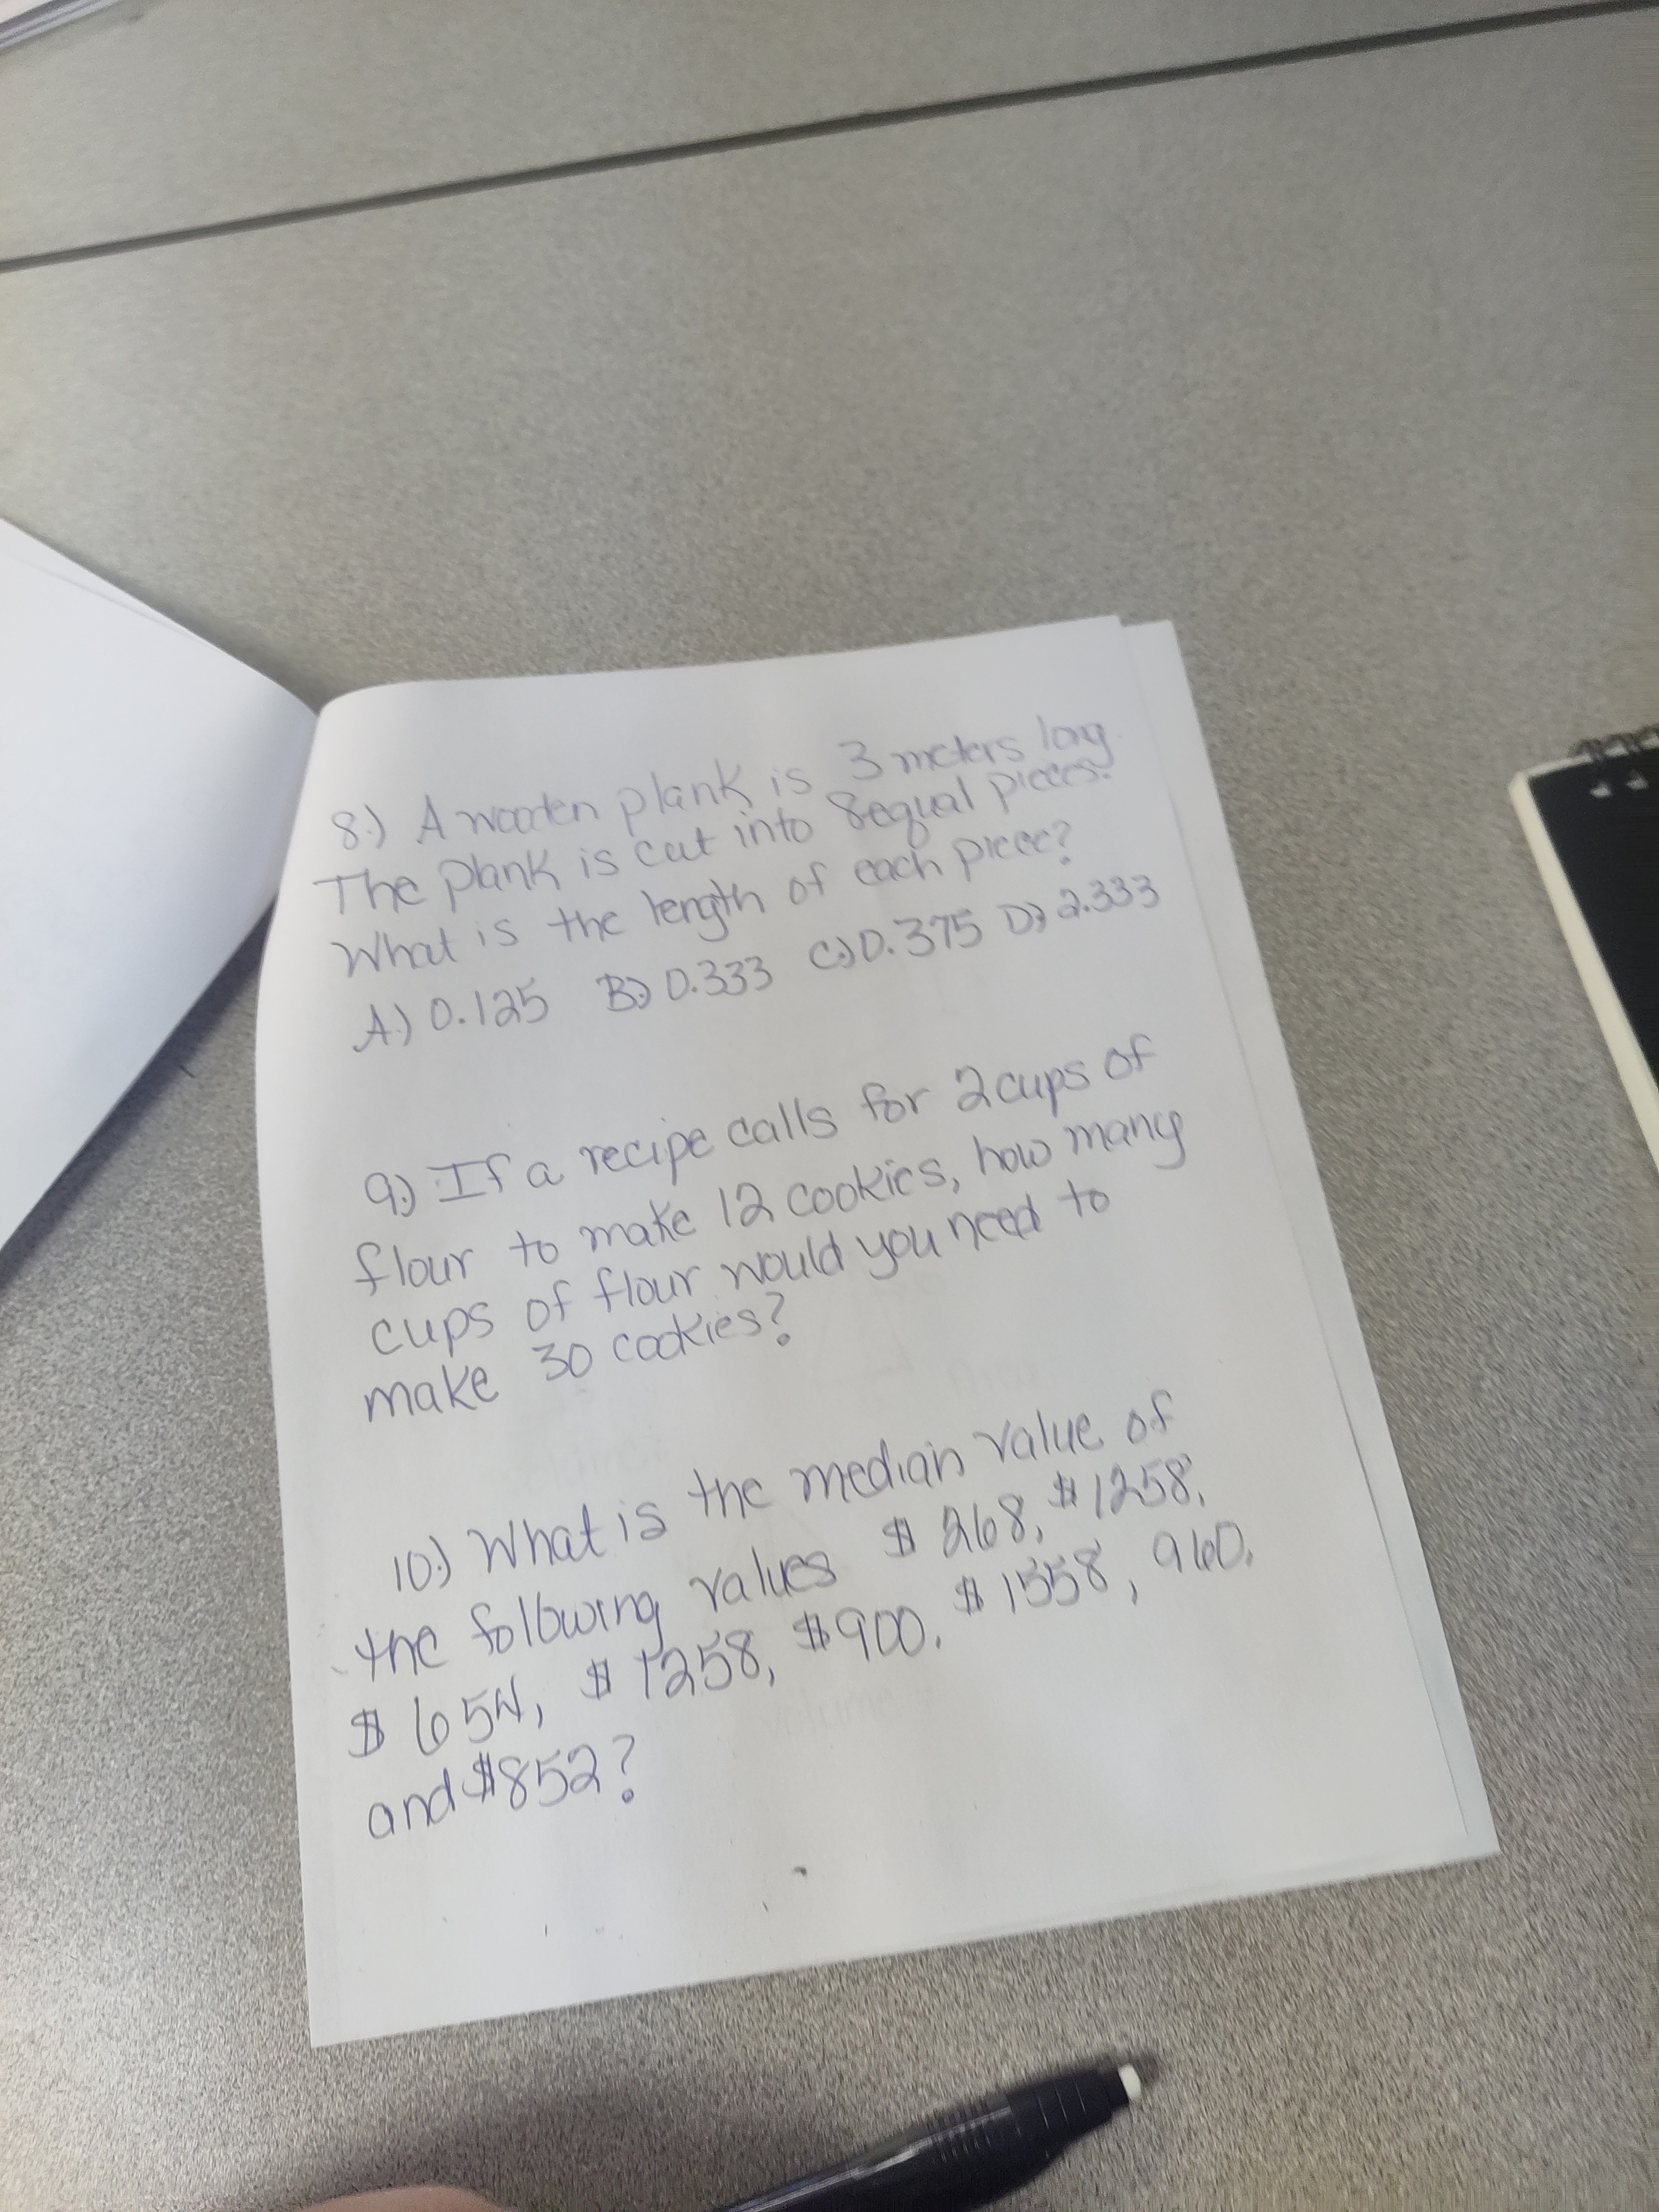 8.) A wooden plank is 3 meters long.
The plank is cut into 8 equal pieces.
What is the length of each piece?
A.) 0.125 B.) 0.333 C.) 0.375 D.) 2.333
9.) If a recipe calls for 2 cups of
flour to make 12 cookies, how many
cups of flour would you need to
make 30 cookies?
10.) What is the median value of
the following values $ 268, $1258,
$ 654, $ 1258, $900, $ 1558, 960,
and $852?